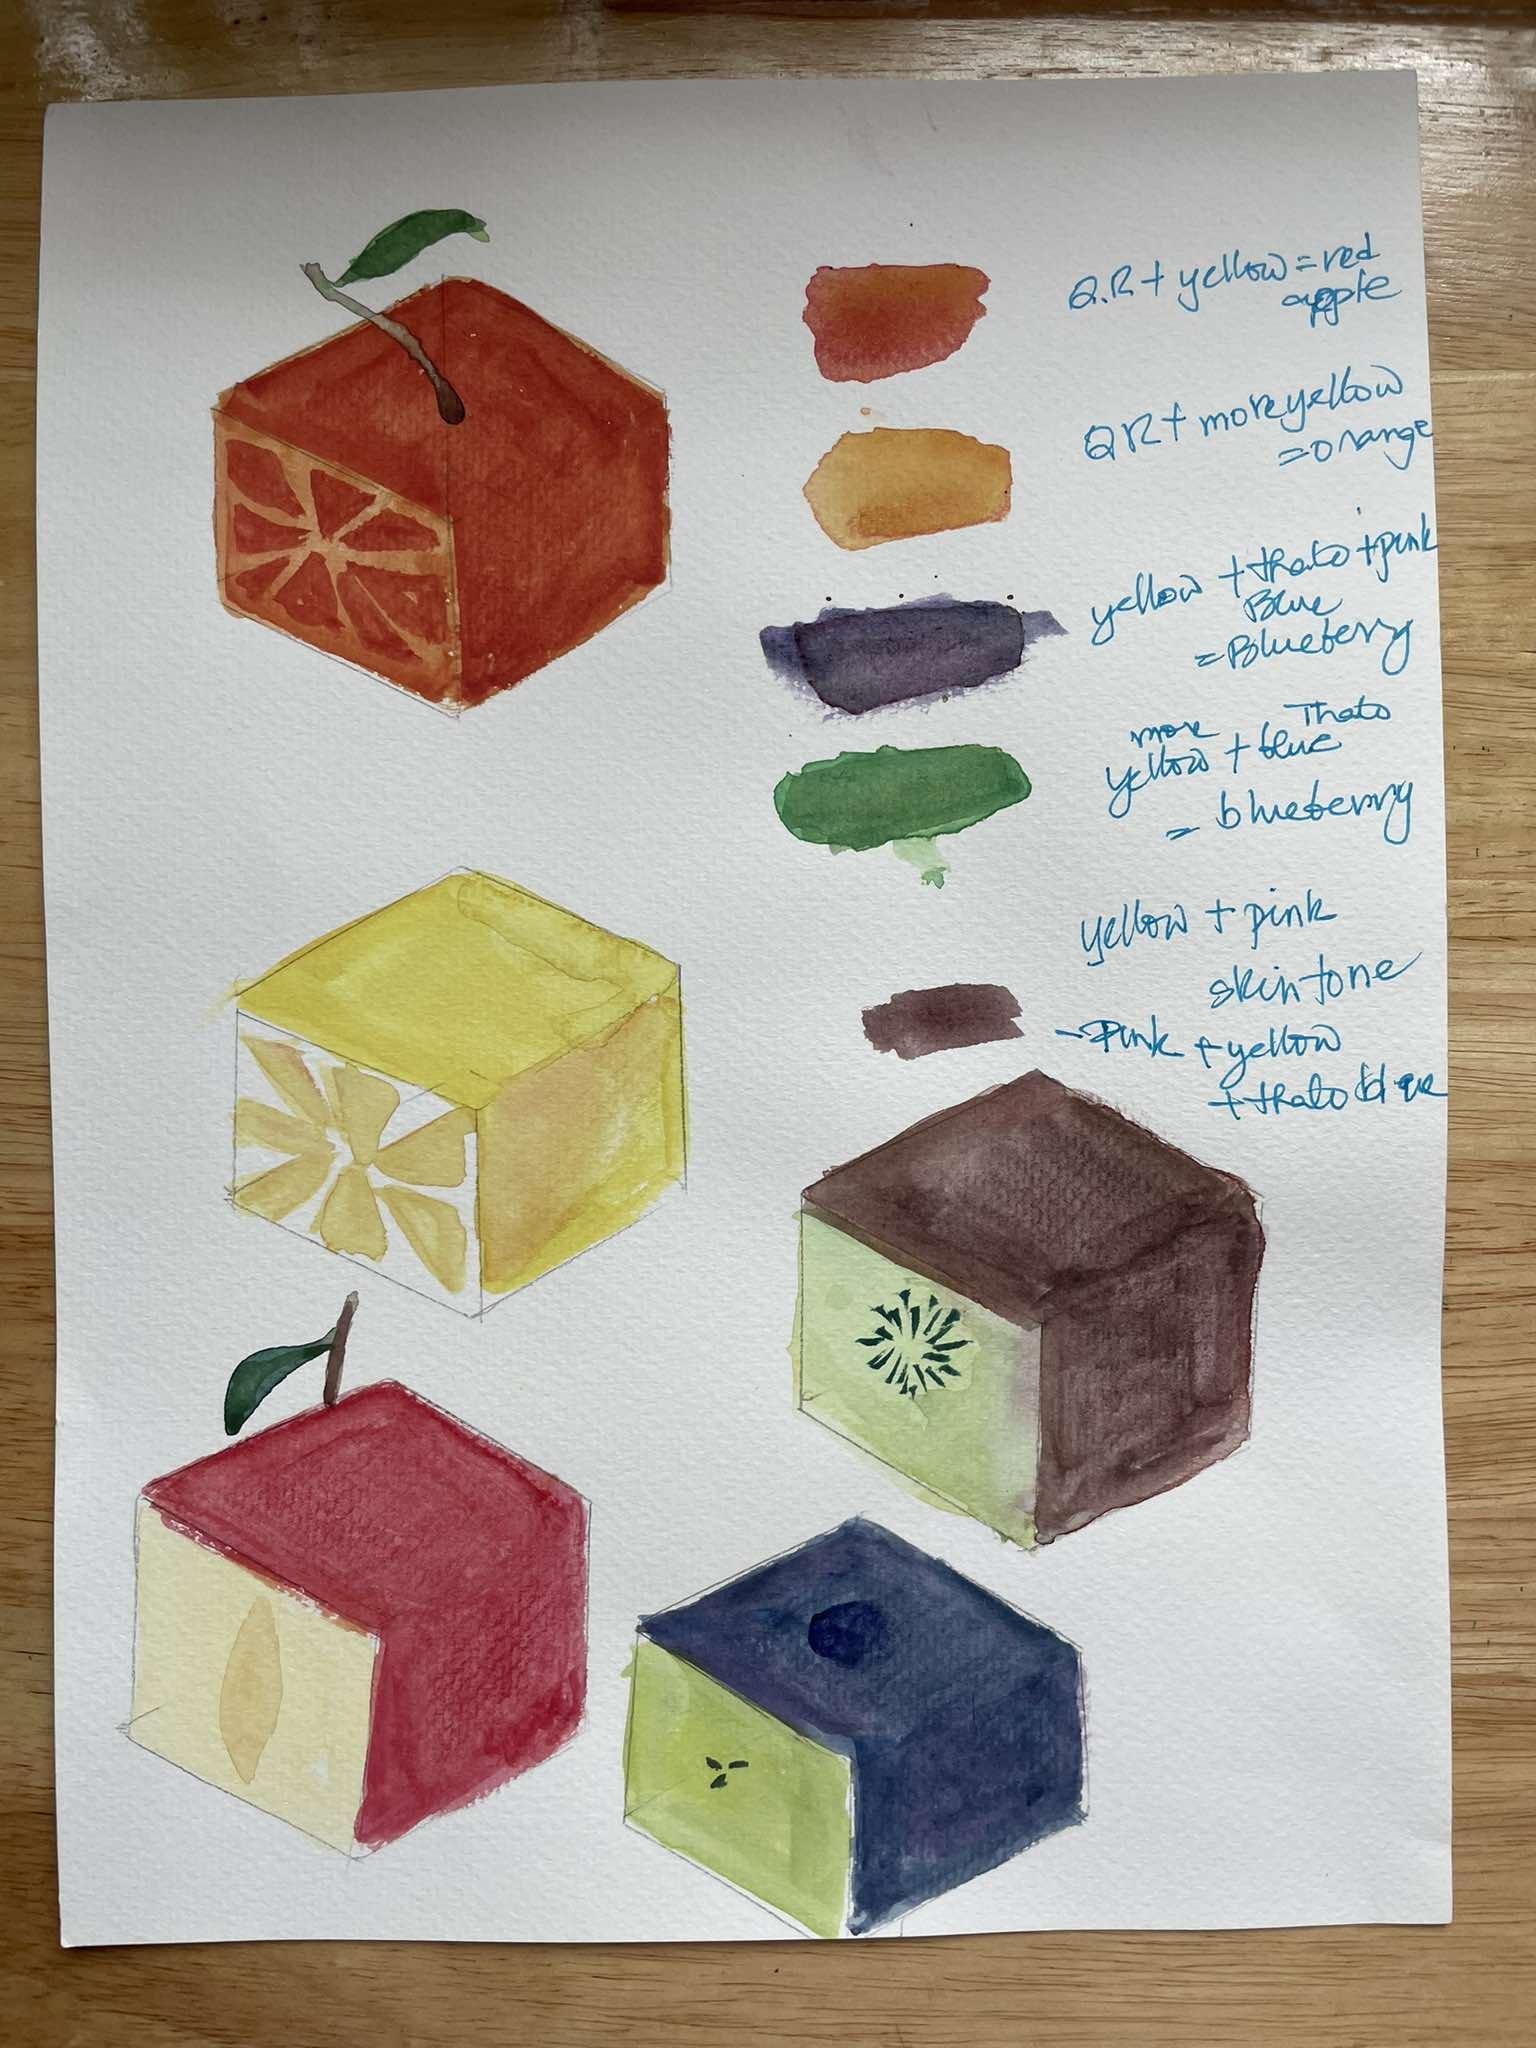 Q.R + yellow = red
apple
QR + more yellow
= orange
yellow + thato + pink
Blue
= Blueberry
more Thato
yellow + blue
= blueberry
yellow + pink
skin tone
- Pink + yellow
+ thato blue